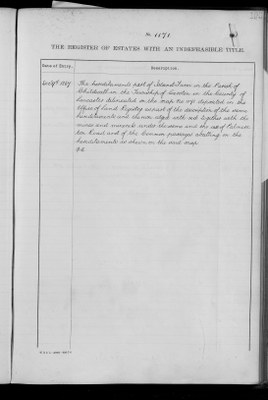 No. 1171
THE REGISTER OF ESTATES WITH AN INDEFEASIBLE TITLE.
Date of Entry.
Description.
1867
The hereditaments part of Island Farm in the Parish of
Childwall in the Township of Garston in the County of
Lancaster delineated on the map No deposited in the
Office of Land Registry as part of the description of the same
hereditaments and thereon edged with red together with the
mines and minerals under the same and the use of
Road and of the Common passages abutting on the
hereditaments as shown on the said map